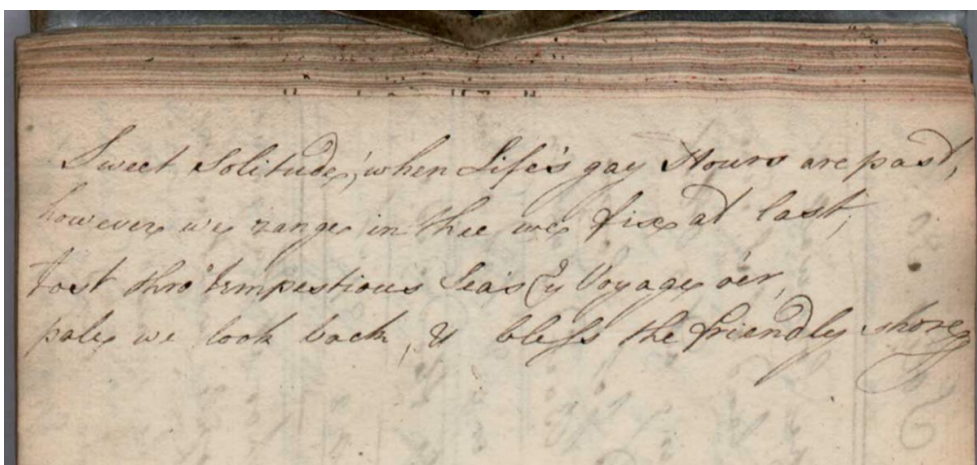 Sweet Solitude, when Life's gay Hours are past,
however we range in thee we fix at last,
tost thro' tempestious Seas (ye Voyage o'er,
pale we look back, & bless the friendly shore